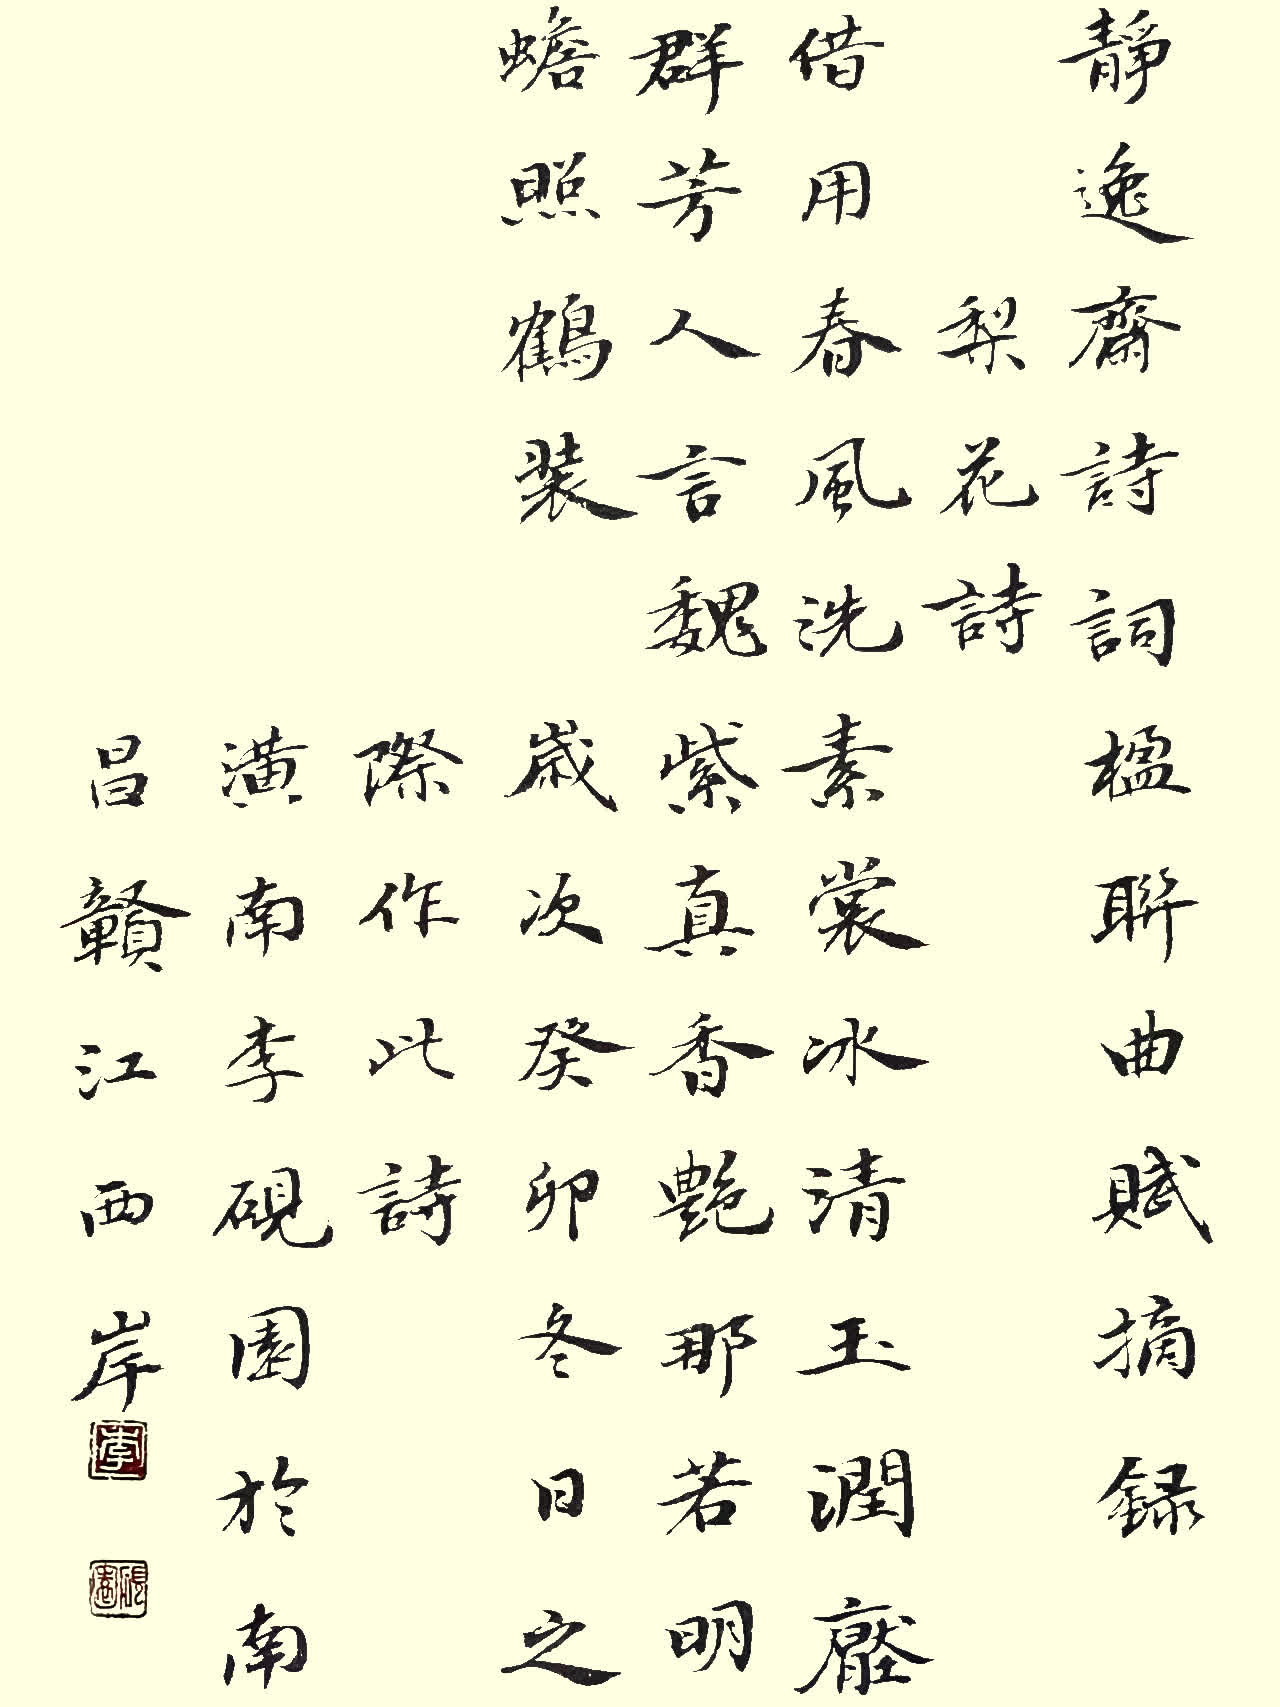 靜逸齋詩詞楹聨曲賦摘録
梨花詩
借用春風洗素裳冰清玉潤壓
群芳人言魏紫真香艷那若明
蟾照鶴装　歲次癸卯冬日之
際作此詩
潢南李硯園於南
昌贛江西岸
李
硯園